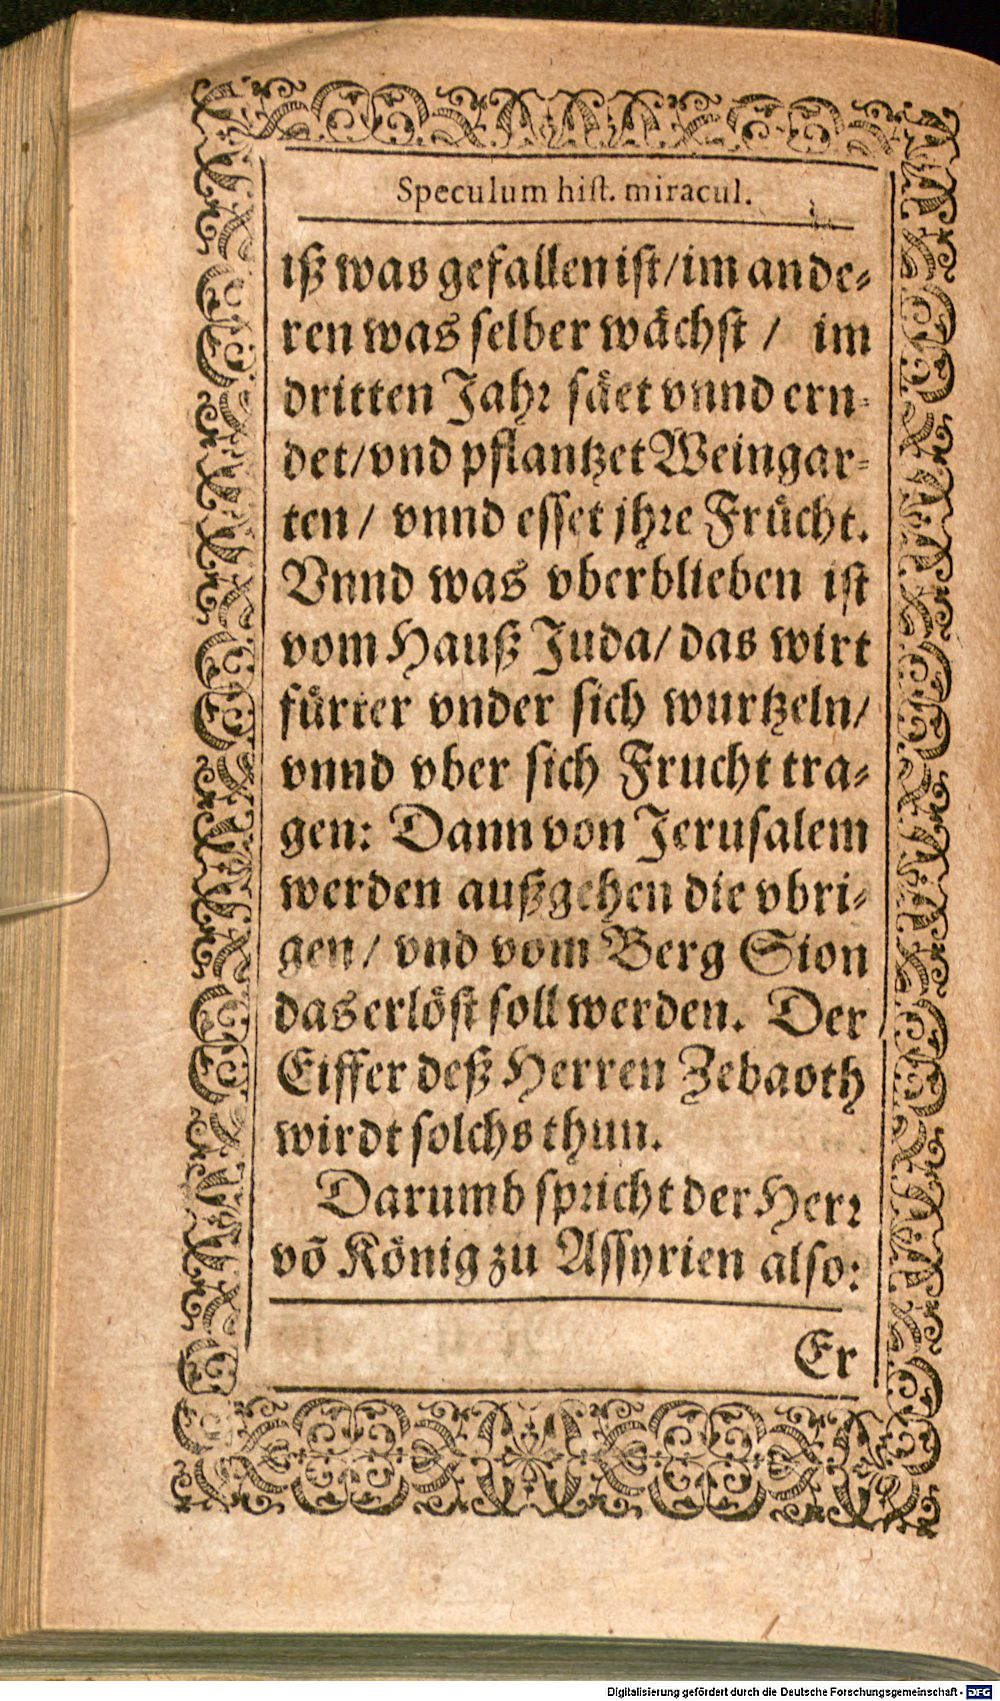 Speculum hiſt. miracul.
iß was gefallen iſt/im ande⸗
ren was ſelber wächſt / im
dritten Jahr ſäet vnnd ern⸗
det/vnd pflantzet Weingar⸗
ten / vnnd eſſet jhre Frücht.
Vnnd was vberblieben iſt
vom Hauß Juda/ das wirt
fürter vnder ſich wurtzeln/
vnnd vber ſich Frucht tra⸗
gen: Dann von Jeruſalem
werden außgehen die vbri⸗
gen / vnd vom Berg Sion
das erlöſt ſoll werden. Der
Eiffer deß Herren Zebaoth
wirdt ſolchs thun.
Darumb ſpricht der Herr
võ König zu Aſſyrien alſo:
Er
Digitalisierung gefördert durch die Deutsche Forschungsgemeinschaft - DFG